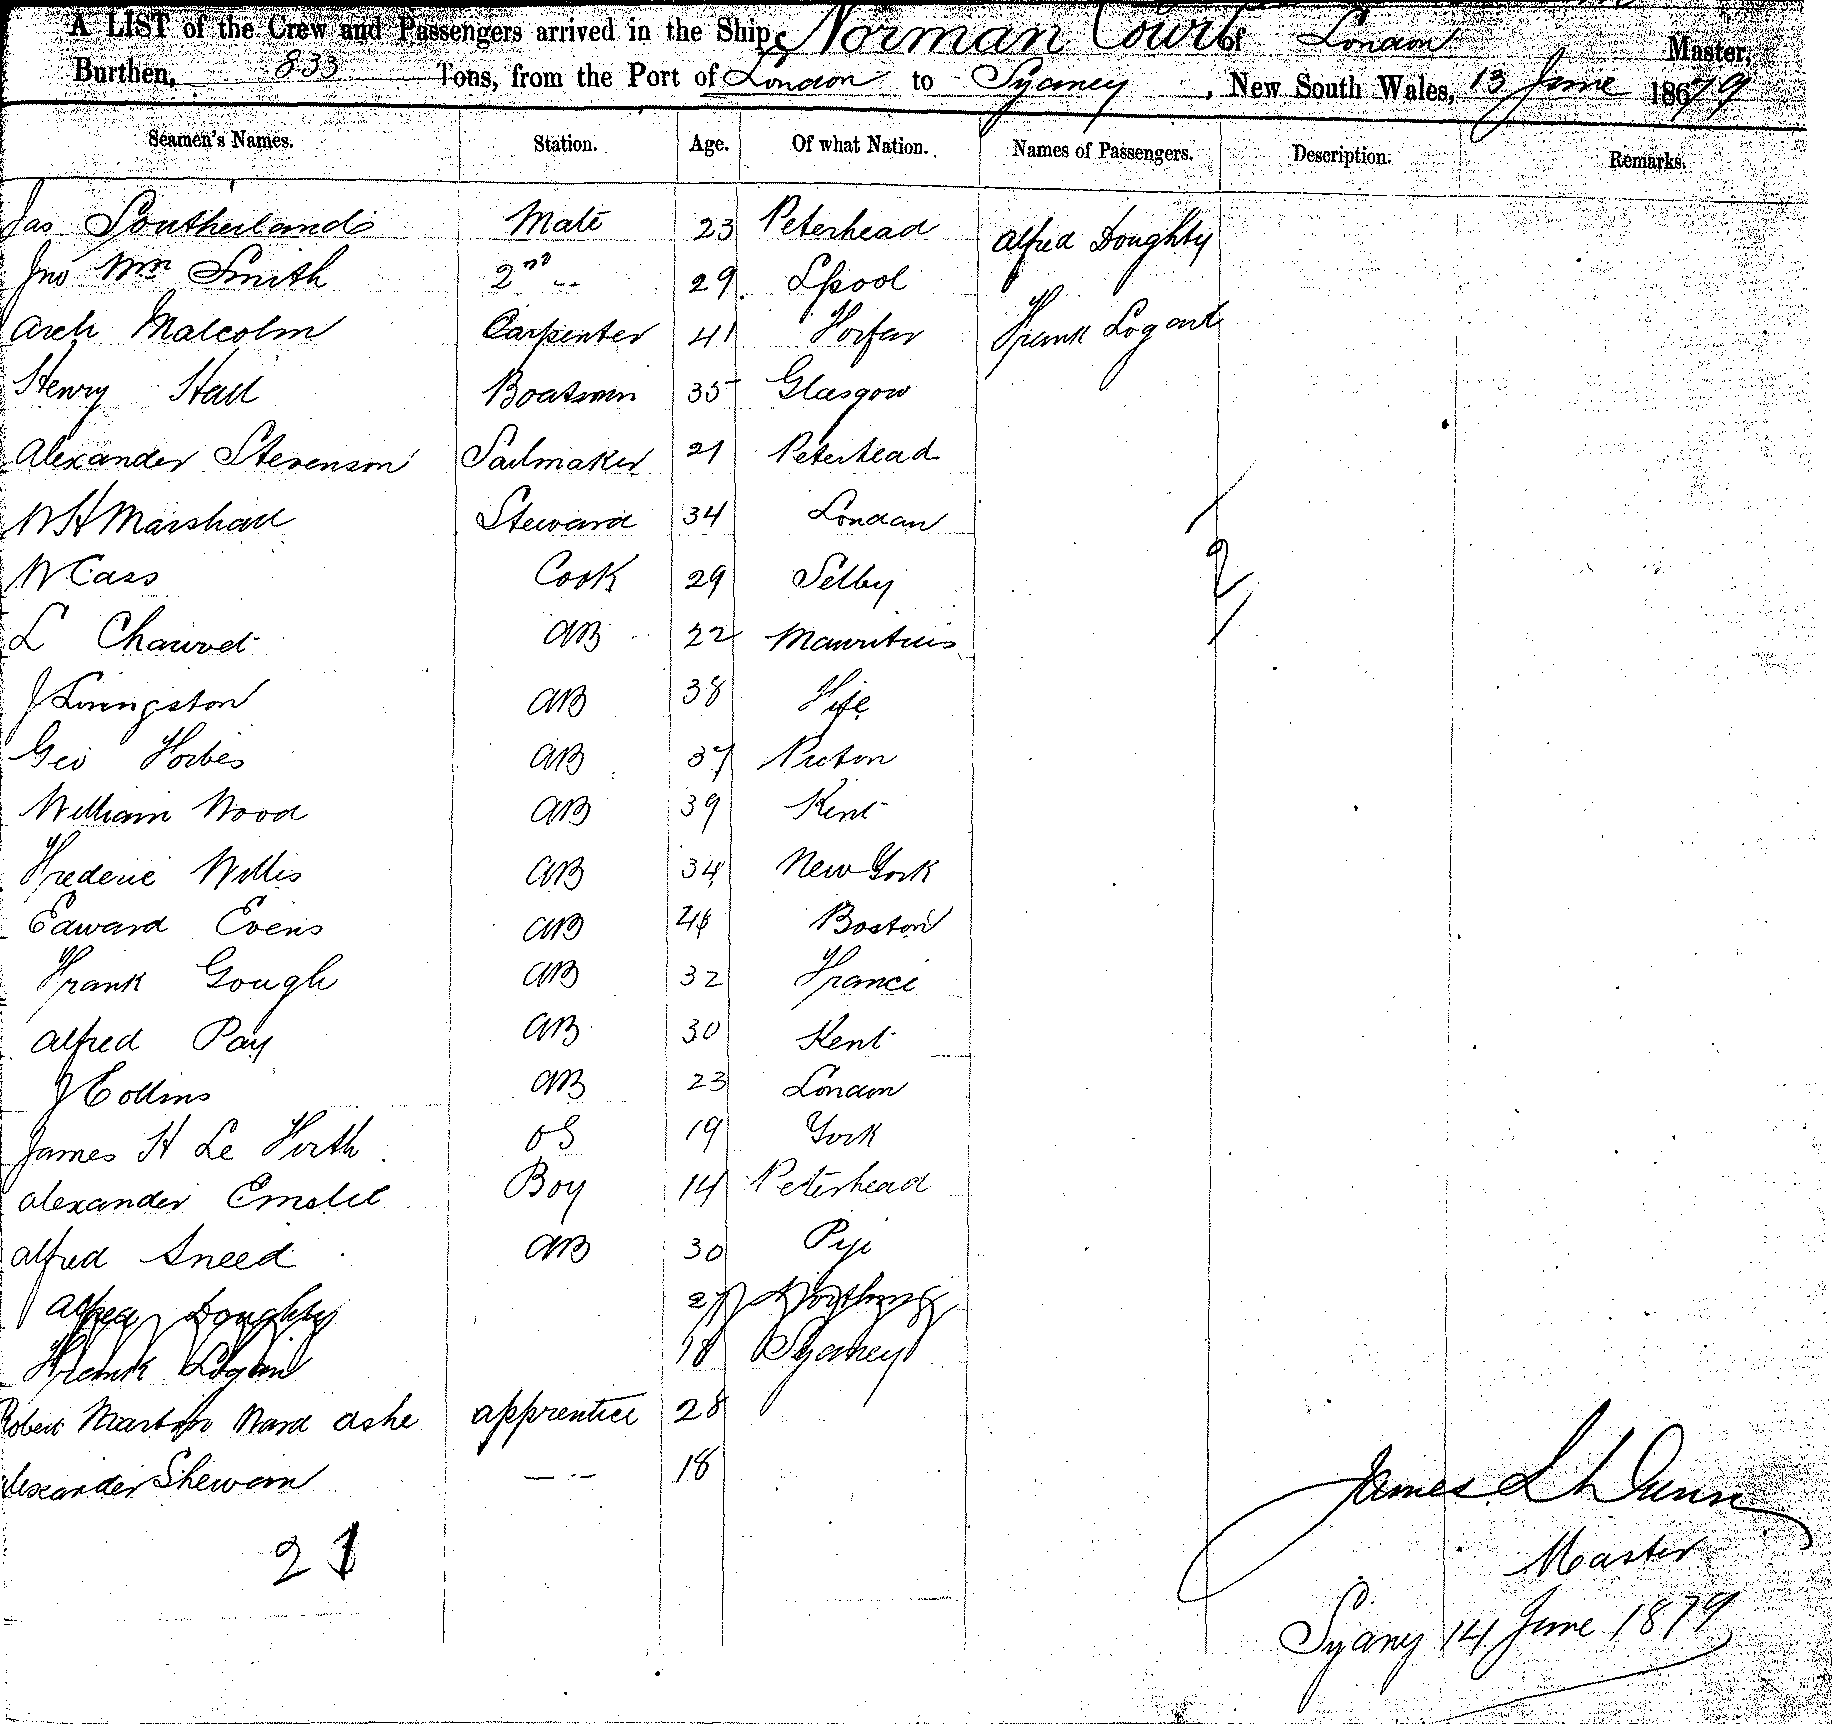 A LIST of the Crew and Passengers arrived in the Ship Norman Court of London Master,
Burthen, 833 Tons, from the Port of London to Sydney, New South Wales, 13 June 1879
Seamen's Names. Station. Age. Of what Nation. Names of Passengers. Description. Remarks.
Jas Southerland Mate 23 Peterhead Alfred Doughty
Jno Wm Smith 2nd " 29 Lpool
Arch Malcolm Carpenter 41 Forfar Frank Logan
Henry Hall Boatswn 35 Glasgow
Alexander Stevenson Sailmaker 21 Peterhead
W H Marshall Steward 34 London
W Cass Cook 29 Selby 2
L Chauvet AB 22 Mauritius
J Livingston AB 38 Fife
Geo Forbes AB 37 Picton
William Wood AB 39 Kent
Frederic Willis AB 34 New York
Edward Evens AB Boston
Frank Gough AB 32 France
Alfred Pay AB 30 Kent
J Collins AB 23 London
James H Le Firth OS 19 York
Alexander Emslie Boy 14 Peterhead
Alfred Sneed AB 30 Fiji
Alfred Doughty 27
Frank Logan 18 Sydney
Robert Martin Ward Ashe apprentice 28
Alexander Shewan — " — 18
21
James L Dunn
Master
Sydney 14 June 1879